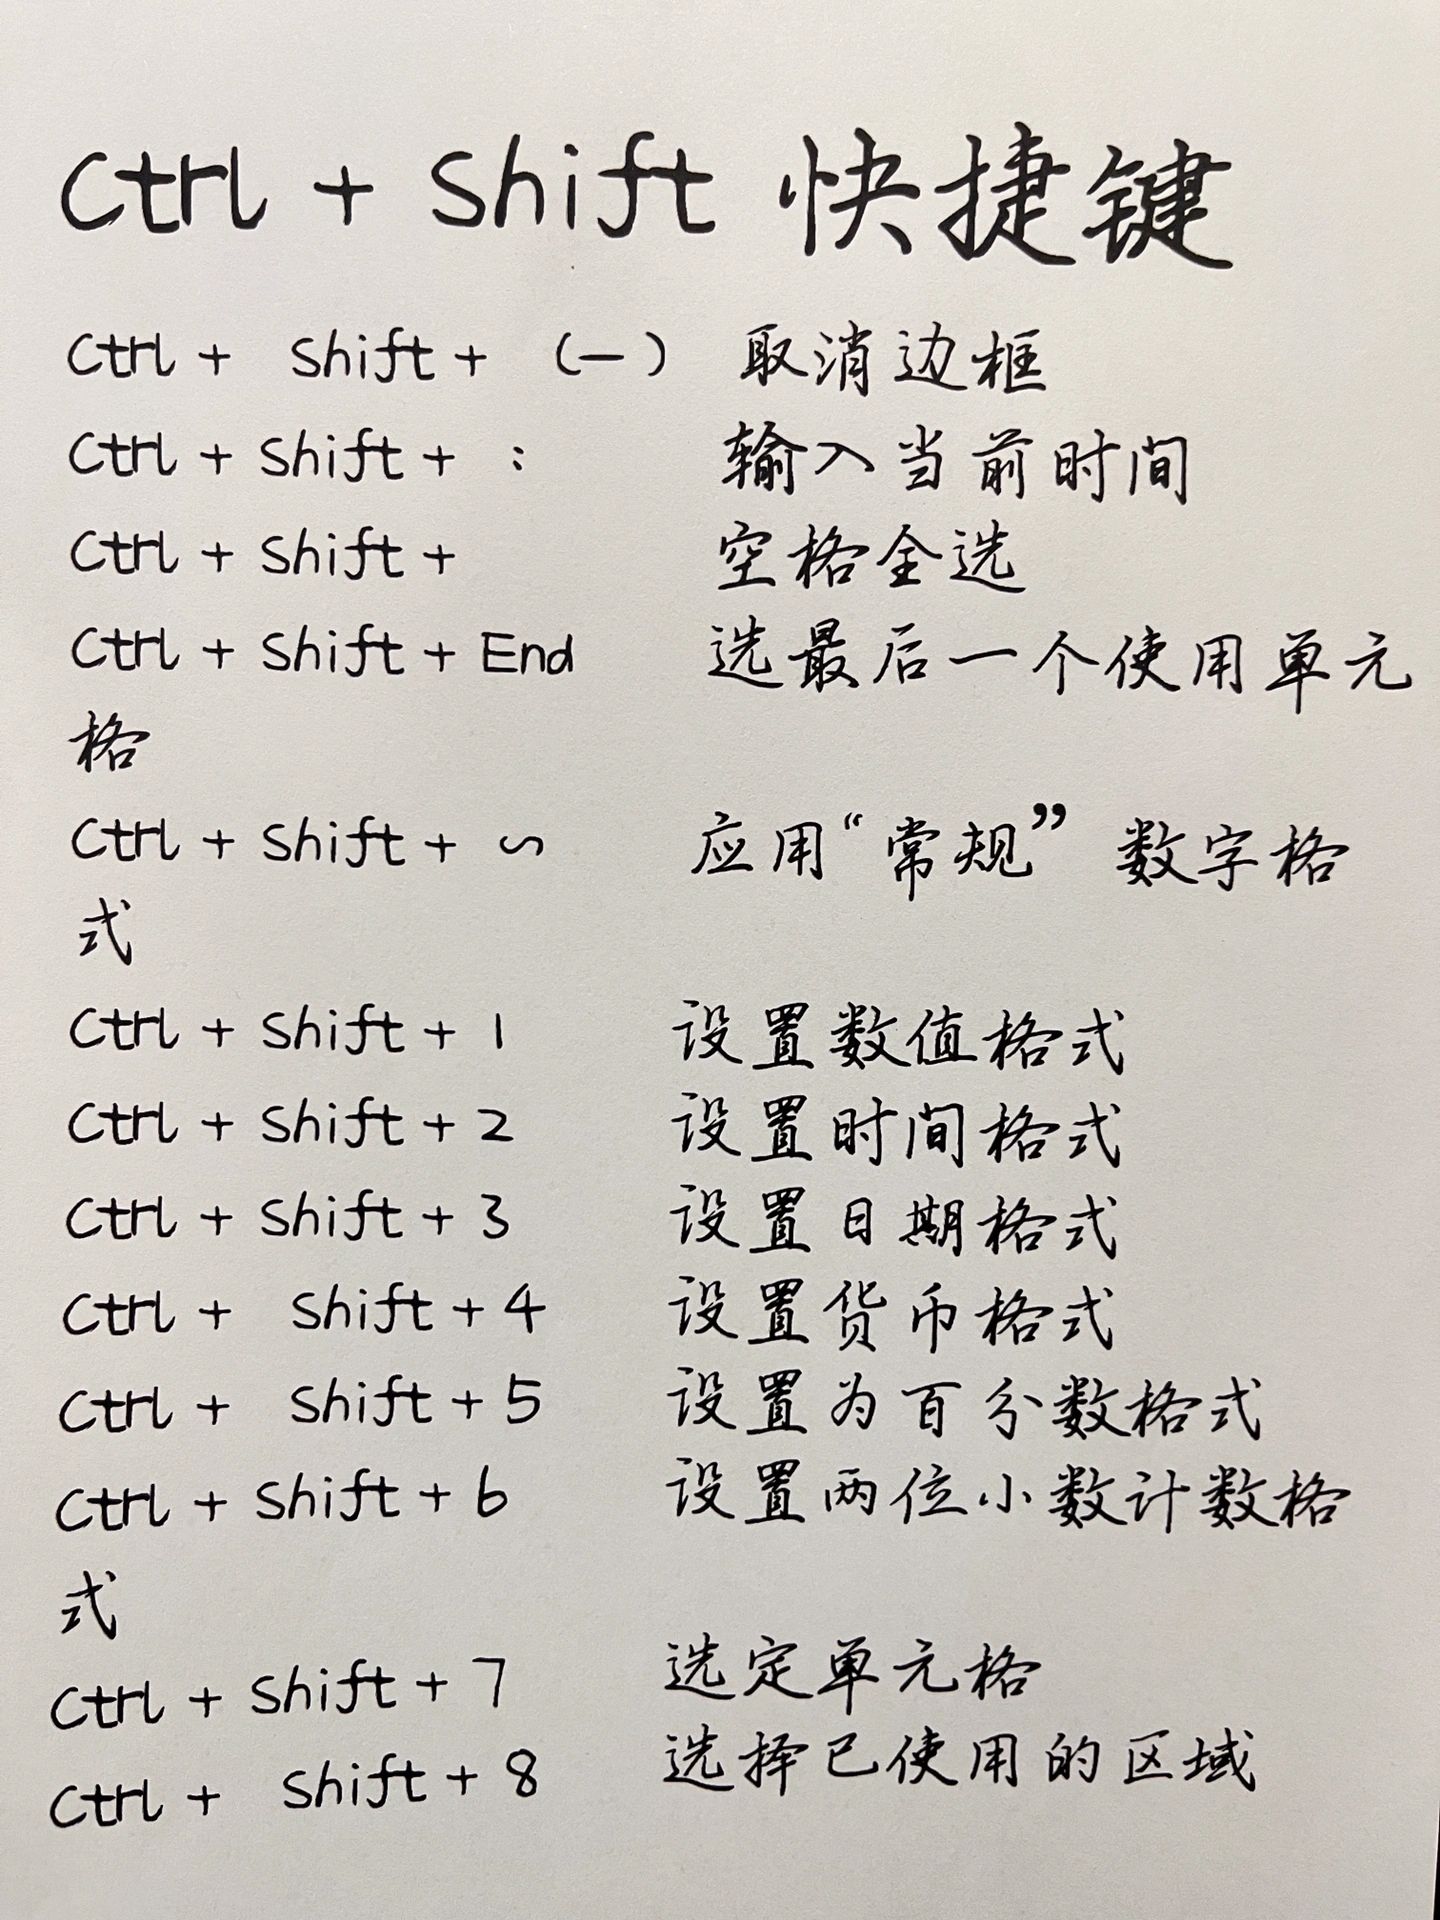 Ctrl + Shift 快捷键
Ctrl + Shift + (一) 取消边框
Ctrl + Shift + : 输入当前时间
Ctrl + Shift + 空格全选
Ctrl + Shift + End 选最后一个使用单元
格
Ctrl + Shift + ~ 应用“常规”数字格
式
Ctrl + Shift + 1 设置数值格式
Ctrl + Shift + 2 设置时间格式
Ctrl + Shift + 3 设置日期格式
Ctrl + Shift + 4 设置货币格式
Ctrl + Shift + 5 设置为百分数格式
Ctrl + Shift + 6 设置两位小数计数格
式
Ctrl + Shift + 7 选定单元格
Ctrl + Shift + 8 选择已使用的区域